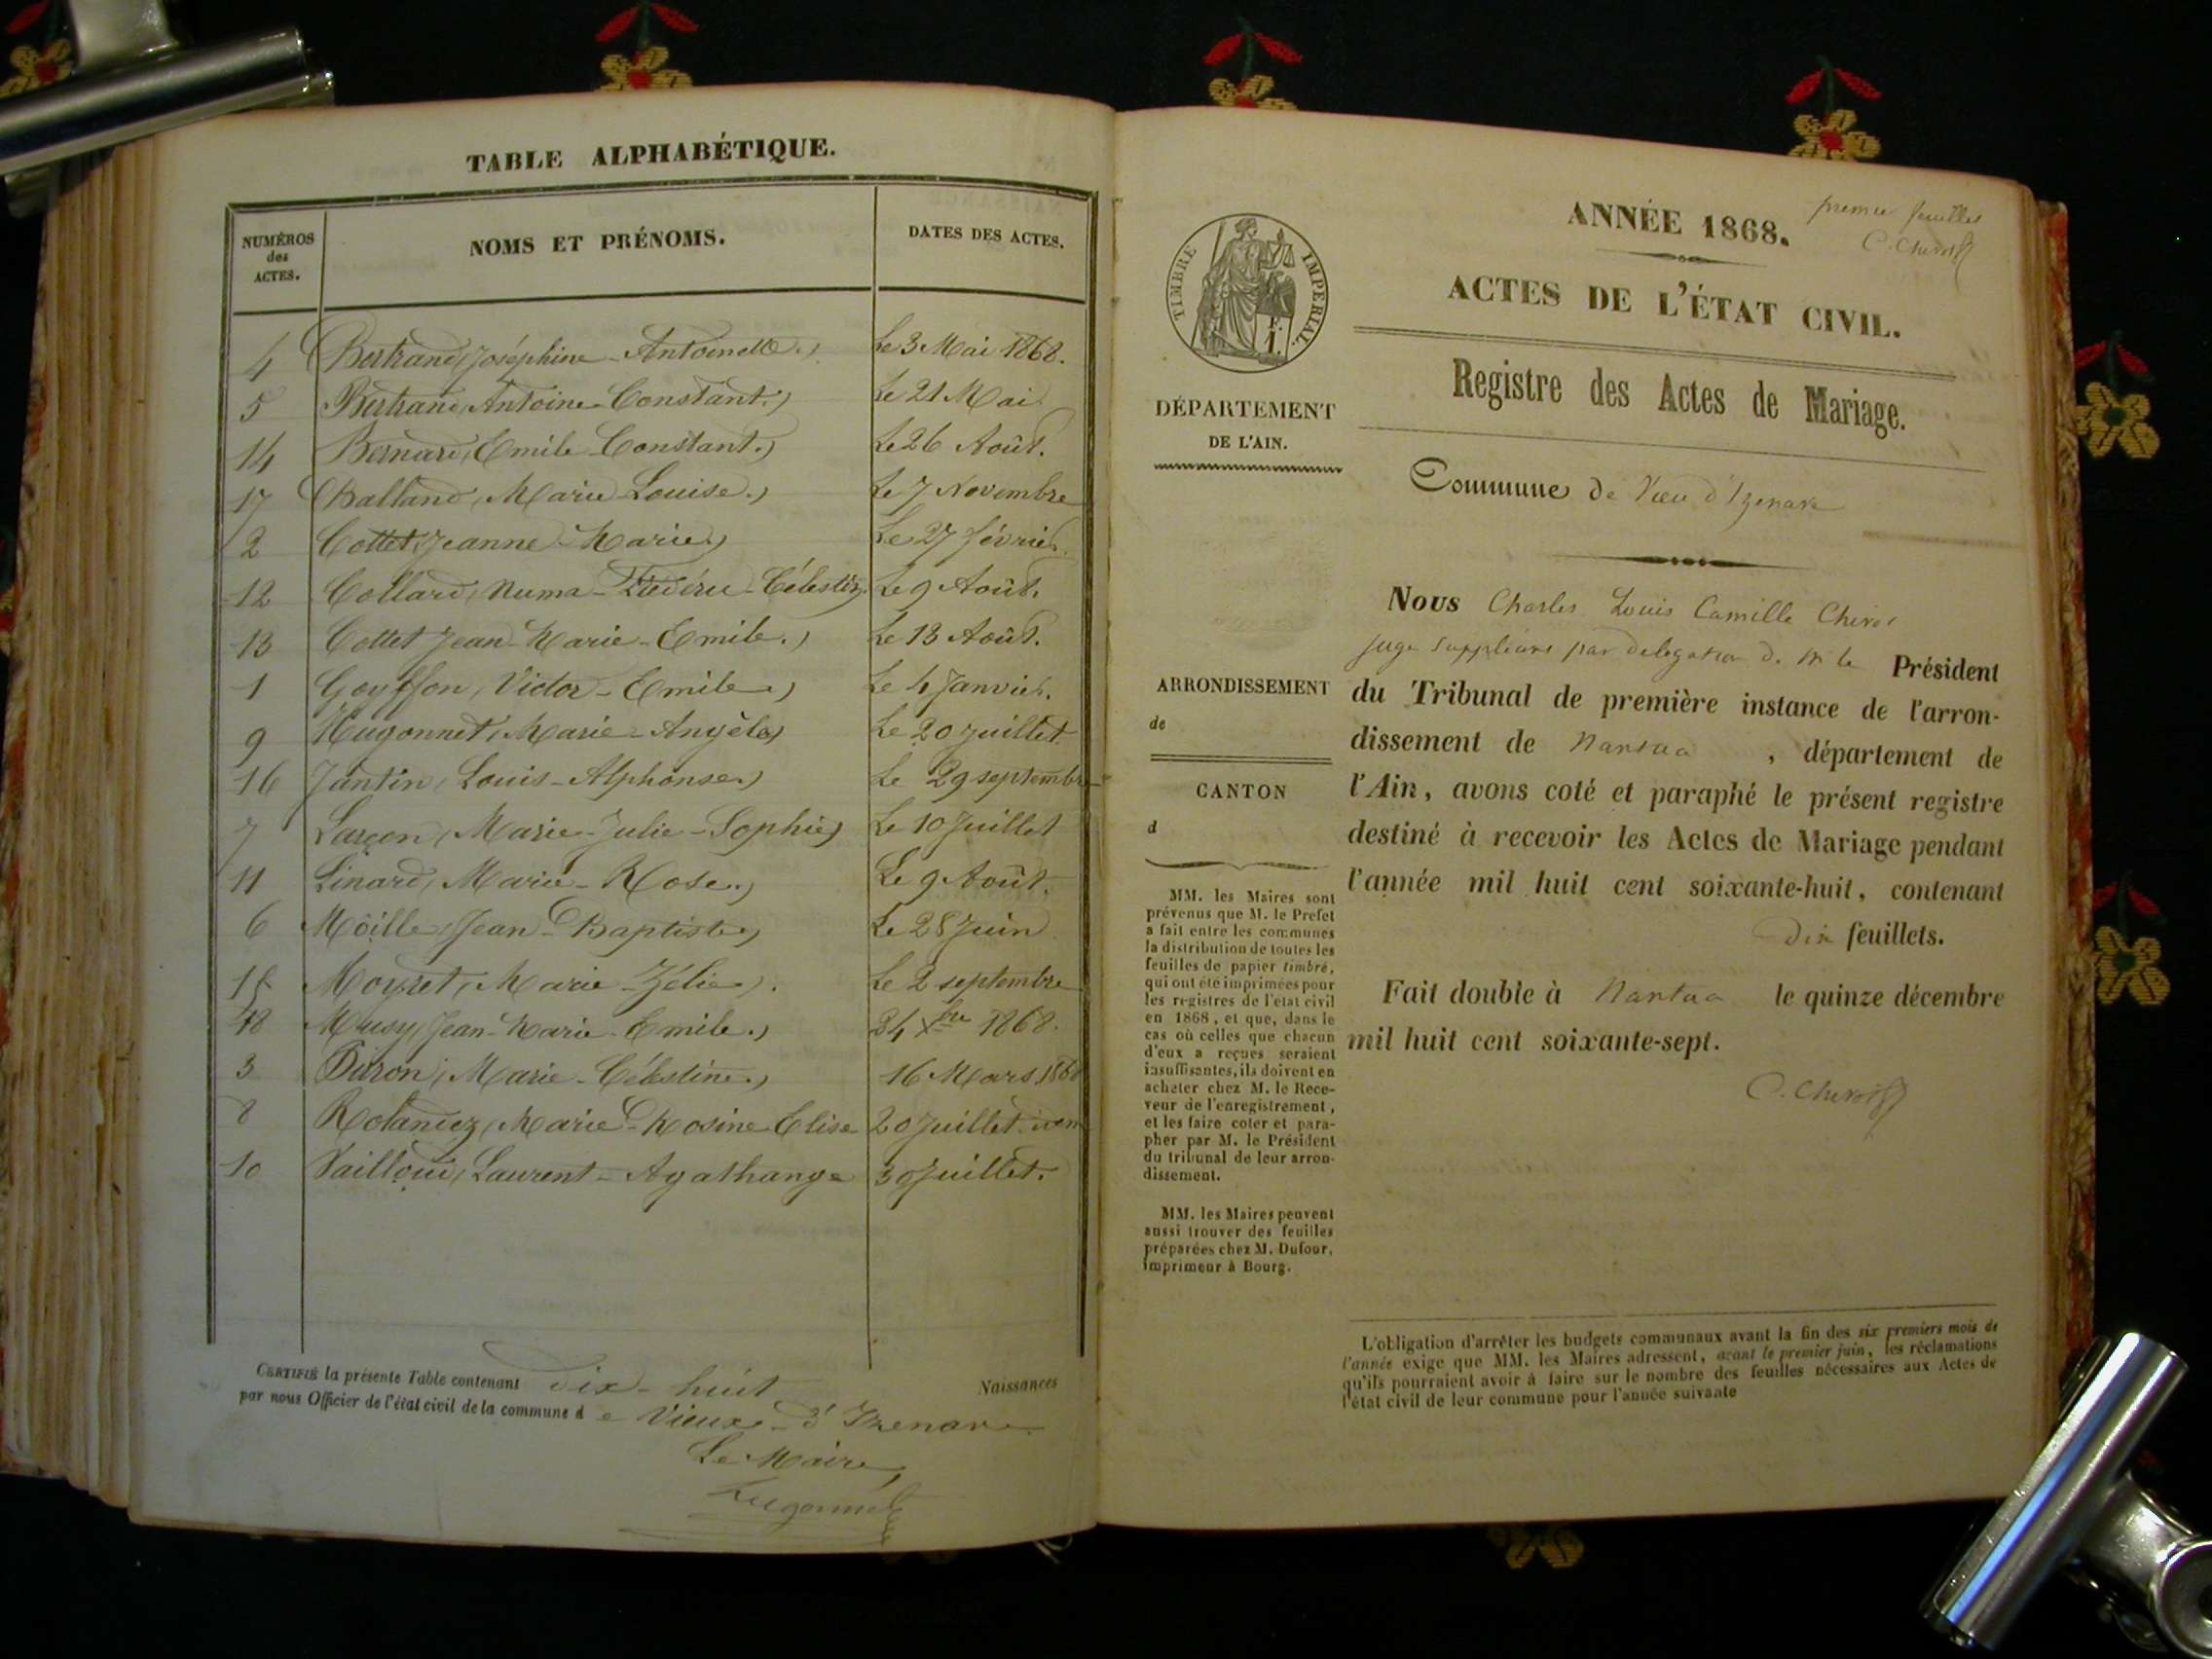 TABLE ALPHABÉTIQUE.
NUMÉROS des ACTES.
NOMS ET PRÉNOMS.
DATES DES ACTES.
4 Bertrand, Joséphine-Antoinette. Le 3 Mai 1868.
5 Bertrand, Antoine-Constant. Le 21 Mai
14 Bernard, Emile-Constant. Le 26 Août.
17 Balland, Marie-Louise. Le 7 Novembre
2 Cottet, Jeanne-Marie Le 27 février
12 Collard, Numa- Le 9 Août.
13 Cottet Jean-Marie-Emile. Le 13 Août.
1 Goyffon, Victor-Emile Le 4 Janvier.
9 Hugonnet, Marie-Angèle Le 20 Juillet
16 Jantin, Louis-Alphonse Le 29 septembre
7 Larçon, Marie-Julie-Sophie Le 10 Juillet
11 Linard, Marie-Rose. Le 9 Août.
6 Moille, Jean-Baptiste Le 28 Juin
15 Moyret, Marie-Zélie. Le 2 septembre
18 Musy, Jean-Marie-Emile. Xbre 1868.
3 Marie-Célestine. 16 Mars 1868
8 Marie-Rosine Elise 20 Juillet idem
10 Laurent-Agathange 30 Juillet.
CERTIFIÉ la présente Table contenant dix-huit Naissances
par nous Officier de l'état civil de la commune de Vieux-d'Izenave
Le Maire,
Hugonnet
ANNÉE 1868.
C. Cherot
TIMBRE IMPERIAL.
ACTES DE L'ÉTAT CIVIL.
Registre des Actes de Mariage.
DÉPARTEMENT
DE L'AIN.
Commune de Vieu d'Izenave
ARRONDISSEMENT
de
CANTON
d
MM. les Maires sont
prévenus que M. le Prefet
a fait entre les communes
la distribution de toutes les
feuilles de papier timbré,
qui ont été imprimées pour
les registres de l'état civil
en 1868, et que, dans le
cas où celles que chacun
d'eux a reçues seraient
insuffisantes, ils doivent en
acheter chez M. le Rece-
veur de l'enregistrement,
et les faire coter et para-
pher par M. le Président
du tribunal de leur arron-
dissement.
MM. les Maires peuvent
aussi trouver des feuilles
préparées chez M. Dufour,
imprimeur à Bourg.
Nous Charles Louis Camille Cherot
juge suppléant par délégation de M le Président
du Tribunal de première instance de l'arron-
dissement de Nantua , département de
l'Ain, avons coté et paraphé le présent registre
destiné à recevoir les Actes de Mariage pendant
l'année mil huit cent soixante-huit, contenant
dix feuillets.
Fait double à Nantua le quinze décembre
mil huit cent soixante-sept.
C. Cherot
L'obligation d'arrêter les budgets communaux avant la fin des six premiers mois de
l'année exige que MM. les Maires adressent, avant le premier juin, les réclamations
qu'ils pourraient avoir à faire sur le nombre des feuilles nécessaires aux Actes de
l'état civil de leur commune pour l'année suivante